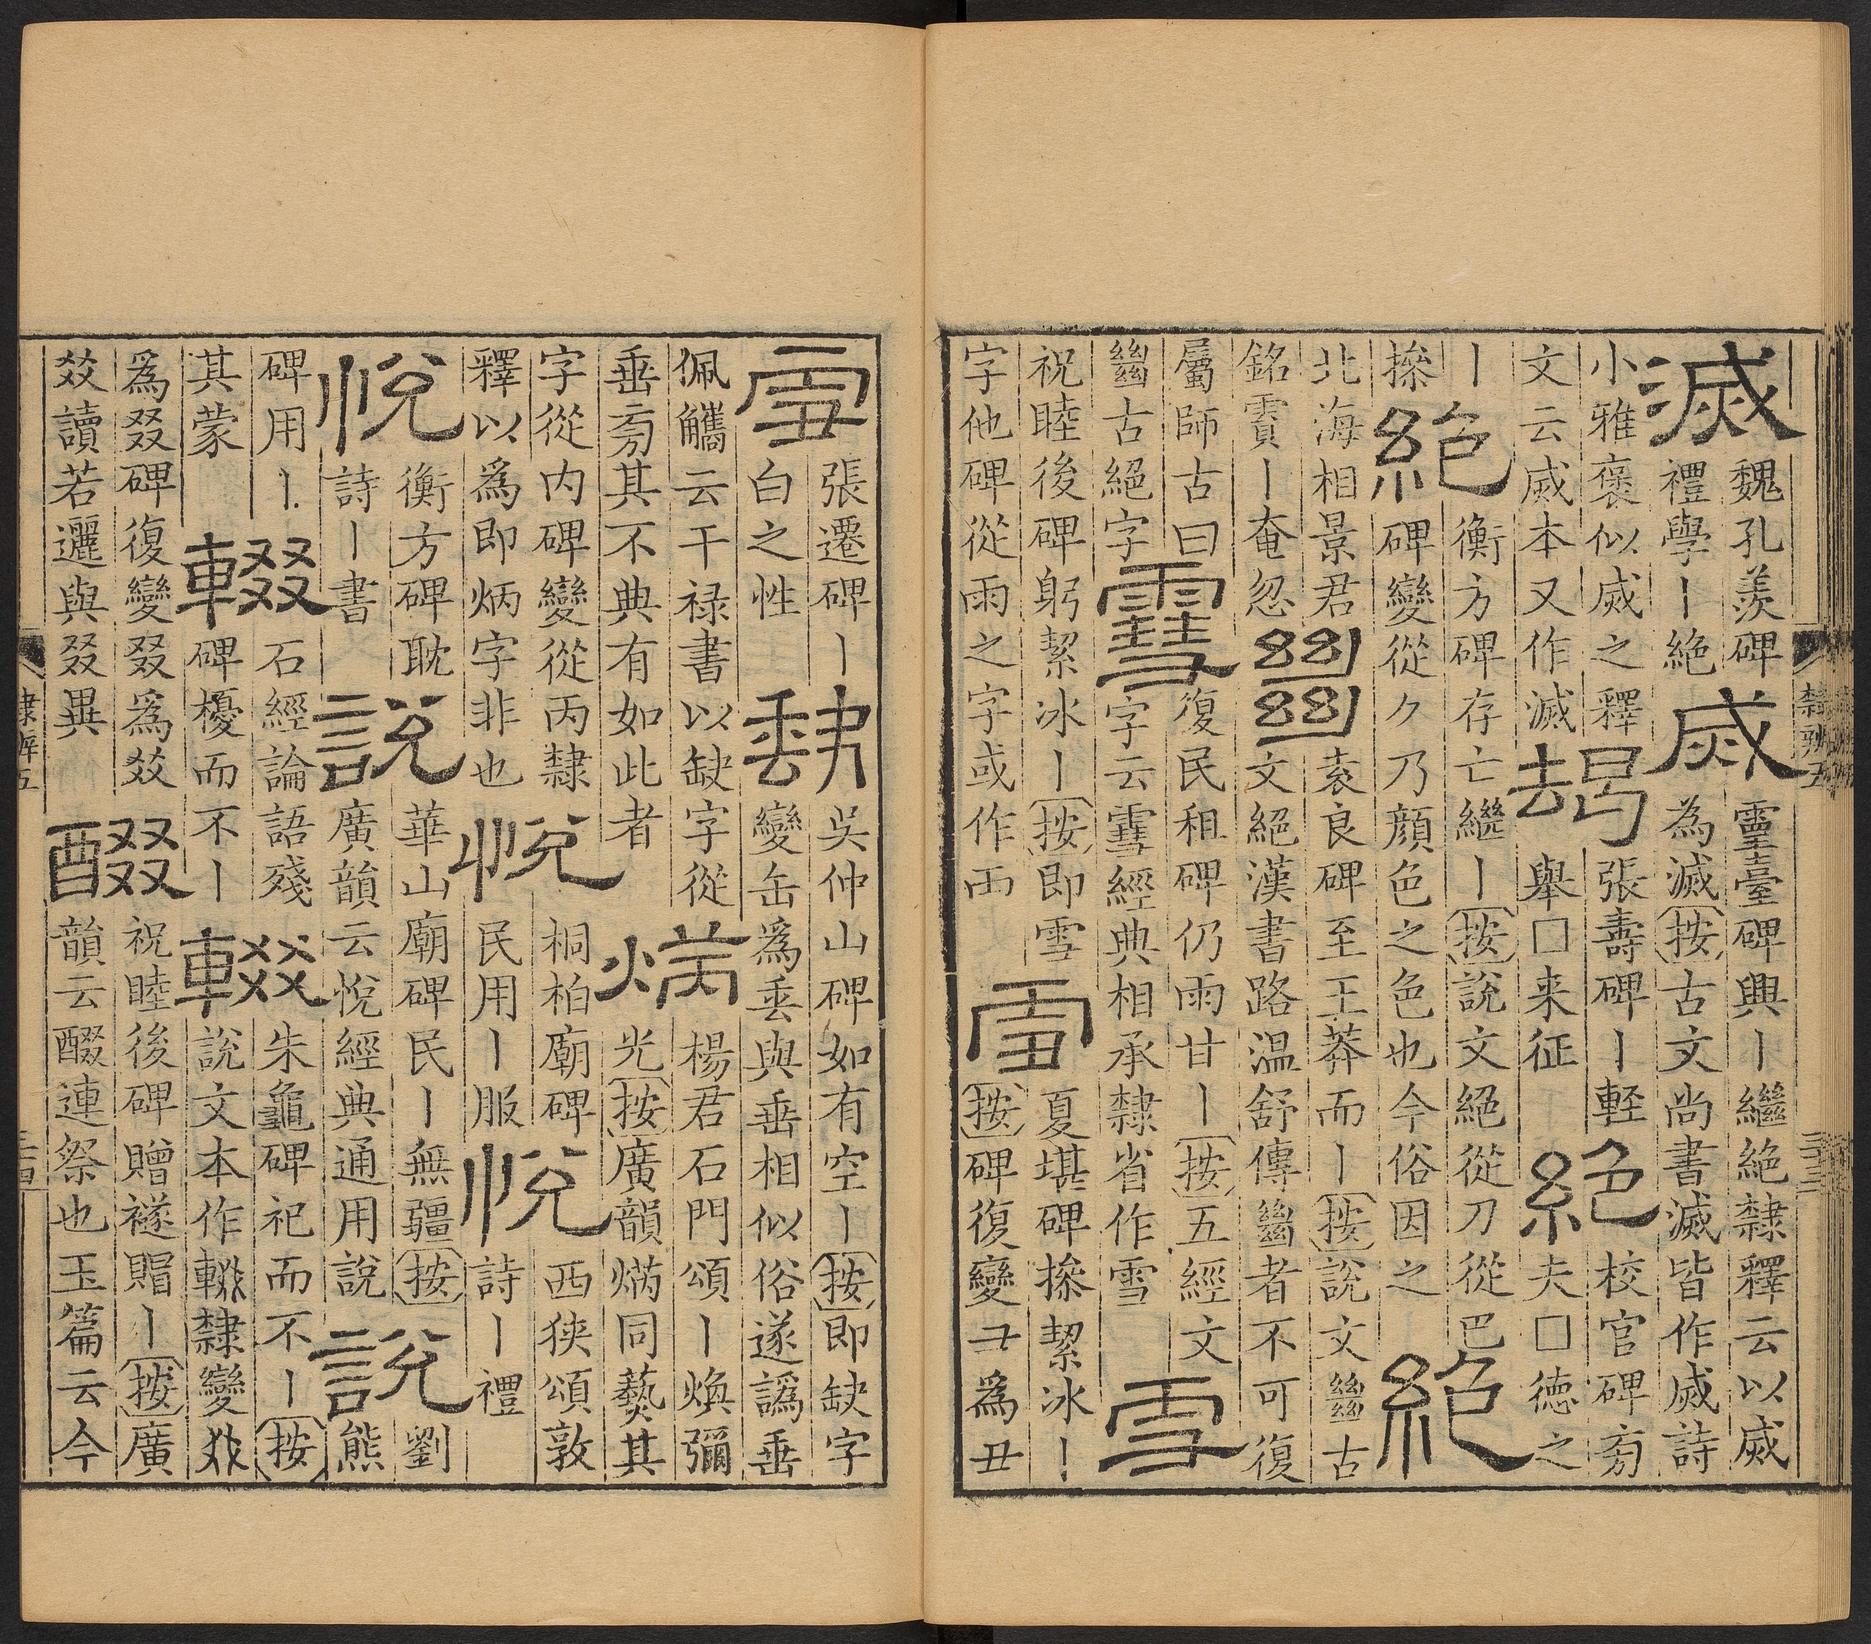 滅
魏孔羡碑
禮學丨絕
烕
靈臺碑興丨繼絕隸釋云以烕
為滅按古文尚書滅皆作烕詩
小雅褒似烕之釋
文云烕本又作滅
朅
張壽碑丨輕
舉□来征
絕
校官碑旁
夫□德之
丨
操
絕
衡方碑存亡繼丨按說文絕從刀從巴
碑變從ク乃顔色之色也今俗因之
絕
北海相景君
銘賷丨奄忽
𢇍
袁良碑至王莽而丨按說文𢇍古
文絕漢書路温舒傳𢇍者不可復
屬師古曰
𢇍古絕字
䨮
復民租碑仍雨甘丨按五經文
字云䨮經典相承隸省作雪
雪
祝睦後碑躬絜冰丨按即雪
字他碑從雨之字或作
雪
夏堪碑操絜冰丨
按碑復變彐為丑
雪
張遷碑丨
白之性
缺
吳仲山碑如有空丨按即缺字
變缶爲垂與垂相似俗遂譌垂
佩觿云干禄書以缺字從
垂旁其不典有如此者
焫
楊君石門頌丨煥彌
光按廣韻焫同爇其
字從内碑變從丙隸
釋以爲即炳字非也
悅
桐柏廟碑
民用丨服
悅
西狹頌敦
詩丨禮
悅
衡方碑耽
詩丨書
說
華山廟碑民丨無疆按
廣韻云悅經典通用說
說
劉
熊
碑用丨
其蒙
輟
石經論語殘
碑櫌而不丨
輟
朱龜碑祀而不丨按
說文本作輟隸變叕
為叕碑復變叕爲㸚
㸚讀若邐與叕異
醊
祝睦後碑贈襚賵丨按廣
韻云醊連祭也玉篇云今